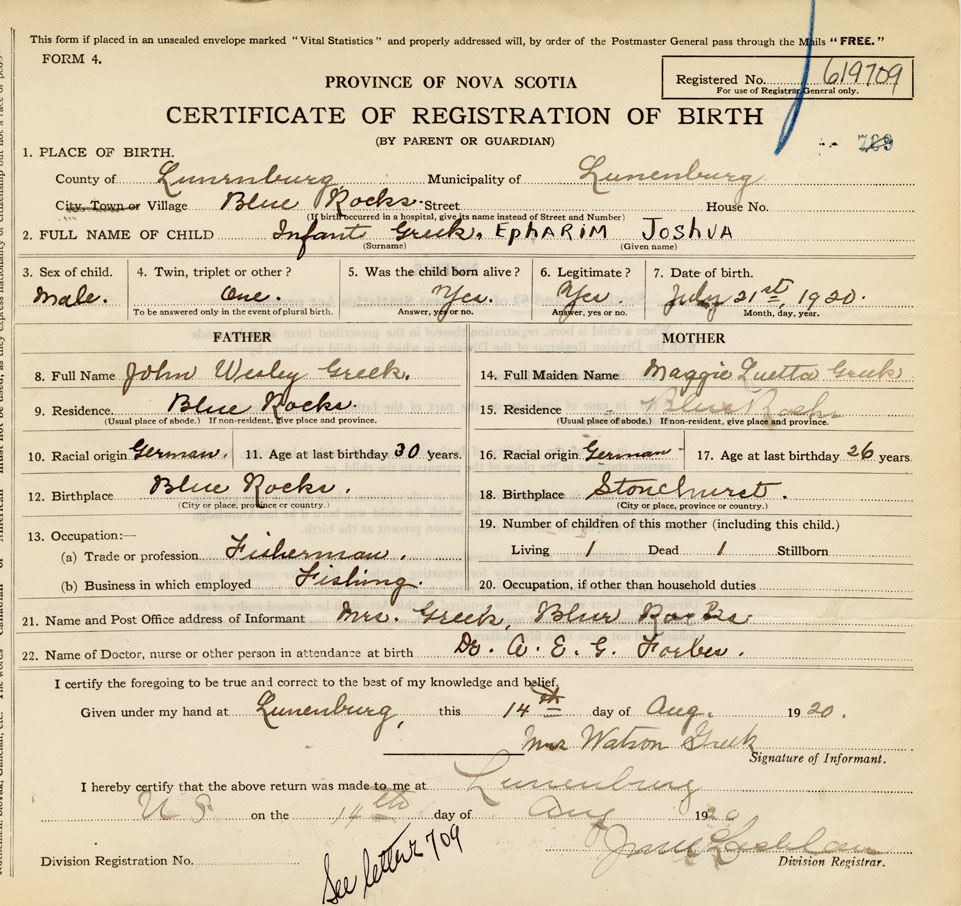 This form if placed in an unsealed envelope marked "Vital Statistics" and properly addressed will, by order of the Postmaster General pass through the Mails "FREE."
FORM 4.
Registered No. 619709
For use of Registrar General only.
PROVINCE OF NOVA SCOTIA
CERTIFICATE OF REGISTRATION OF BIRTH
(BY PARENT OR GUARDIAN)
709
1. PLACE OF BIRTH.
County of Lunenburg Municipality of Lunenburg
City, Town or Village Blue Rocks. Street House No.
(If birth occurred in a hospital, give its name instead of Street and Number)
2. FULL NAME OF CHILD Infant Greek. EPHARIM JOSHUA
(Surname) (Given name)
3. Sex of child. 4. Twin, triplet or other? 5. Was the child born alive? 6. Legitimate? 7. Date of birth.
Male. One. Yes. Yes July 21st, 1920.
To be answered only in the event of plural birth. Answer, yes or no. Answer, yes or no. Month, day, year.
FATHER MOTHER
8. Full Name John Wesley Greek. 14. Full Maiden Name Maggie Luetta Greek
9. Residence Blue Rocks. 15. Residence Blue Rocks
(Usual place of abode.) If non-resident, give place and province. (Usual place of abode.) If non-resident, give place and province.
10. Racial origin German. 11. Age at last birthday 30 years. 16. Racial origin German 17. Age at last birthday 26 years
12. Birthplace Blue Rocks. 18. Birthplace Stonehurst.
(City or place, province or country.) (City or place, province or country.)
13. Occupation:— 19. Number of children of this mother (including this child.)
(a) Trade or profession Fisherman. Living 1 Dead 1 Stillborn
(b) Business in which employed Fishing. 20. Occupation, if other than household duties
21. Name and Post Office address of Informant Mrs. Greek, Blue Rocks
22. Name of Doctor, nurse or other person in attendance at birth Dr. A. E. G. Forbes.
I certify the foregoing to be true and correct to the best of my knowledge and belief.
Given under my hand at Lunenburg, this 14th day of Aug. 1920.
Mrs Watson Greek
Signature of Informant.
I hereby certify that the above return was made to me at Lunenburg
N S on the 14th day of Aug 1920
Division Registration No. Division Registrar.
See letter 709